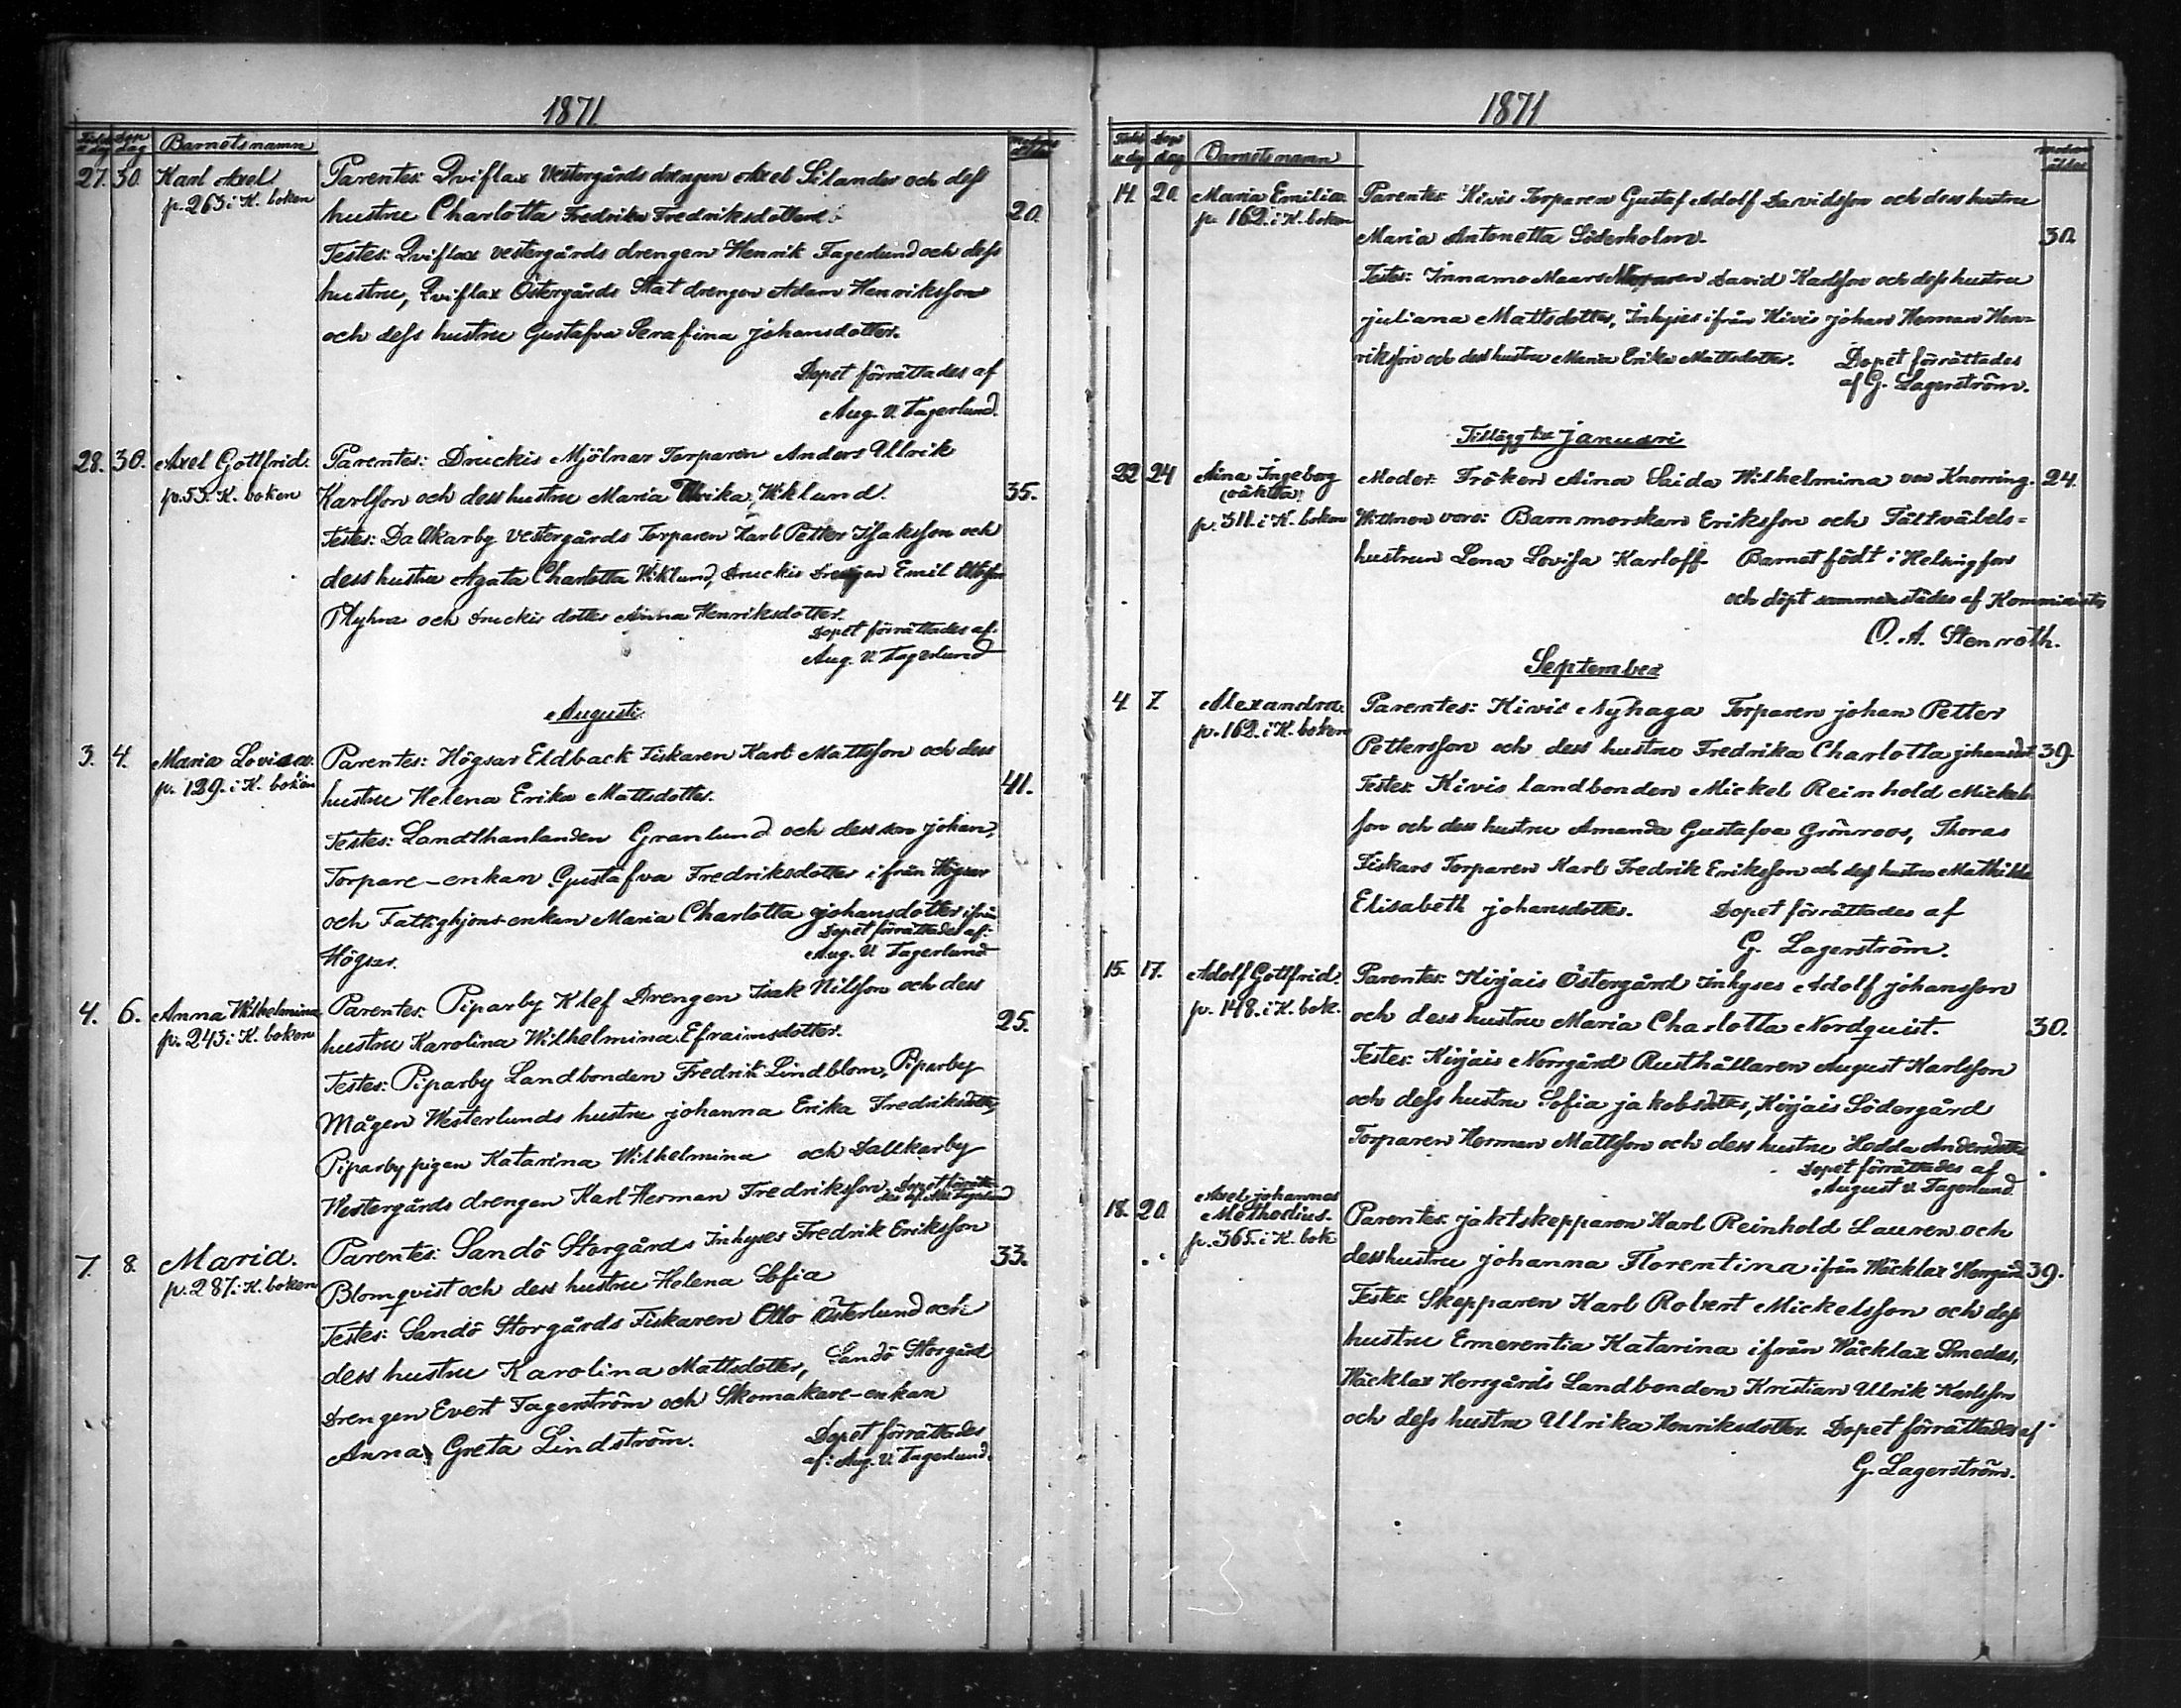 1871
Födelsedag Dopdag Barnets namn moders ålder
27. 30. Karl Axel. Parentes: Qviflax Vestergårds drengen Axel Silander och dess
p. 263 i K. boken hustru Charlotta Fredrika Fredriksdotter. 20.
Testes: Qviflax vestergårds drengen Henrik Fagerlund och dess
hustru, Qviflax Östergårds Stat drengen Adam Henriksson
och dess hustru Gustafva Serafina johansdotter.
Dopet förrättades af
Aug. V. Fagerlund.
28. 30. Axel Gottfrid. Parentes: Druckis Mjölnar Torparen Anders Ullrik
p. 53. K. boken Karlsson och dess hustru Maria Ulrika Wiklund. 35.
Testes: Dalkarby Vestergårds Torparen Karl Petter Isaksson och
dess hustru Agata Charlotta Wiklund, Druckis Drengen Emil
och Druckis dotter Anna Henriksdotter.
Dopet förrättades af.
Aug. V. Fagerlund
Augusti.
3. 4. Maria Lovisa. Parentes: Högsar Eldback Fiskaren Karl Mattsson och dess
p. 129. i K. boken hustru Helena Erika Mattsdotter. 41.
Testes: Landthanlanden Granlund och dess son johan,
Torpare-enkan Gustafva Fredriksdotter ifrån Högsar
och Fattighjons-enkan Maria Charlotta johansdotter ifrån
Högsar. Dopet förrättades af:
Aug. V. Fagerlund
4. 6. Anna Wilhelmina Parentes: Piparby Klef Drengen Isak Nilsson och dess
p. 243 i K. boken hustru Karolina Wilhelmina Efraimsdotter. 25.
Testes: Piparby Landbonden Fredrik Lindblom, Piparby
Mågen Westerlunds hustru johanna Erika Fredriksdotter,
Piparby pigan Katarina Wilhelmina och Dalkarby
Westergårds drengen Karl Herman Fredriksson. Dopet förrätta-
des af Aug. Fagerlund
7. 8. Maria. Parentes: Sandö Storgårds Inhyses Fredrik Eriksson
p. 287. i K. boken Blomqvist och dess hustru Helena Sofia 33.
Testes: Sandö Storgårds Fiskaren Otto Österlund och
dess hustru Karolina Mattsdotter, Sandö Storgård
Drengen Evert Fagerström och Skomakare-enkan
Anna Greta Lindström. Dopet förrättades
af: Aug. V. Fagerlund.
1871
Födelsedag Dopdag Barnets namn moders ålder
14. 20. Maria Emilia Parentes: Kivis Torparen Gustaf Adolf Davidsson och dess hustru
p. 162. i K. boken Maria Antonetta Söderholm. 30.
Testes: Innamo Maars Torparen David Karlsson och dess hustru
juliana Mattsdotter, Inhyses ifrån Kivis johan Herman Hen-
riksson och dess hustru Maria Erika Mattsdotter. Dopet förrättades
af G. Lagerström.
Tillägg till januari
22 24 Aina Ingeborg Moder: Fröken Aina Saida Wilhelmina von Knorring. 24.
(oäkta)
p. 311. i K. boken Wittnen voro: Barnmorskan Eriksson och Fältväbels-
hustrun Lena Lovisa Karloff. Barnet födt i Helsingfors
och döpt sammanstädes af Kommini
O. A. Stenroth.
September
4. 7. Alexandra. Parentes: Kivis Nyhaga Torparen johan Petter
p. 162. i K. boken Pettersson och dess hustru Fredrika Charlotta johansdot. 39.
Testes: Kivis landbonden Mickel Reinhold Mickels-
son och dess hustru Amanda Gustafva Grönroos, Thoras
Fiskars Torparen Karl Fredrik Eriksson och dess hustru Mathilda
Elisabeth johansdotter. Dopet förrättades af
G. Lagerström.
15. 17. Adolf Gottfrid. Parentes: Kirjais Östergård Inhyses Adolf johansson
p. 148. i K. bok. och dess hustru Maria Charlotta Nordquist. 30.
Testes: Kirjais Norrgård Rusthållaren August Karlsson
och dess hustru Sofia jakobsdotter, Kirjais Södergård
Torparen Herman Mattsson och dess hustru Hedda Andersdotter
Dopet förrättades af
August V. Fagerlund
18. 20. Axel johannes
Methodius. Parentes: jaktskepparen Karl Reinhold Lauren och
p. 365. i K. bok dess hustru johanna Florentina ifrån Wäcklax Herrgård 39.
Testes: Skepparen Karl Robert Mickelsson och dess
hustru Emerentia Katarina ifrån Wäcklax Smedas,
Wäcklax Herrgårds Landbonden Kristian Ulrik Karlsson
och dess hustru Ulrika Henriksdotter. Dopet förrättades af
G. Lagerström.